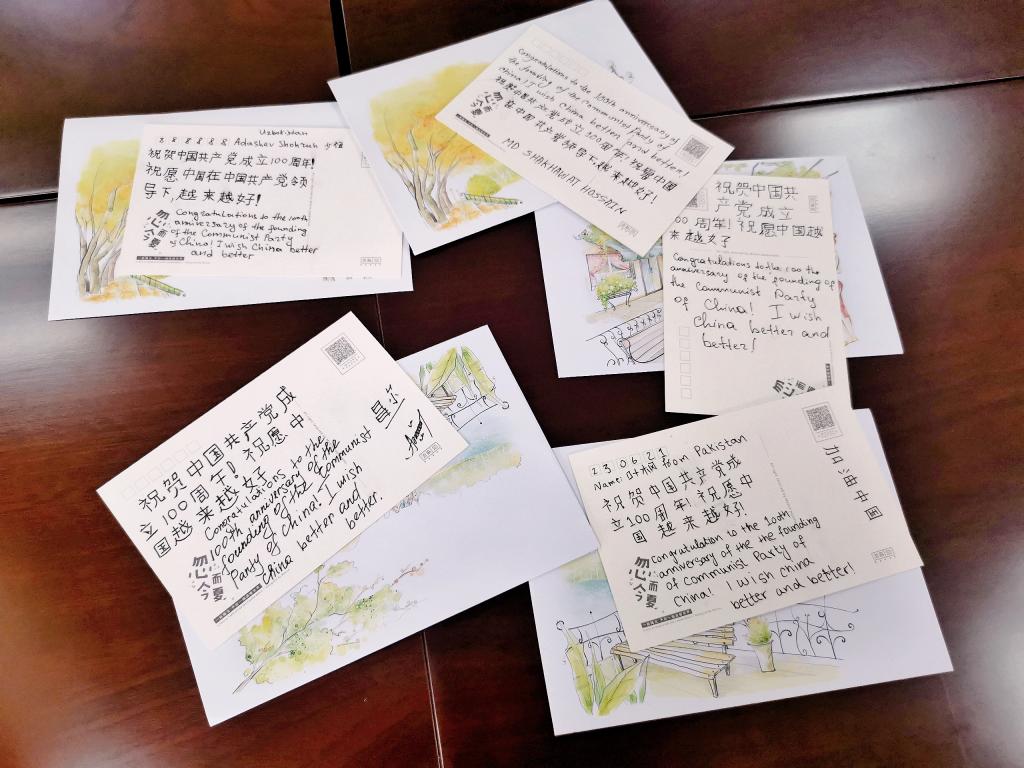 Uzbekistan
888888 Adashev Shohruh
祝贺中国共产党成立100周年!
祝愿中国在中国共产党领
导下,越来越好!
Congratulations to the 100th
anniversary of the founding
of the Communist Party
of China! I wish China better
and better
勿忘今夏
Congratulations to the 100th anniversary of
the founding of the Communist Party of
China! I wish China better and more better!
祝贺中国共产党成立100周年!祝愿中国
在中国共产党领导下,越来越好!
MD SHAKHAWAT HOSSAIN
祝贺中国共
产党成立
100周年!祝愿中国越
来越好
Congratulations to the 100 the
anniversary of the founding of
the Communist Party
of China! I wish
China better and
better!
祝贺中国共产党成
立100周年!祝愿中
国越来越好
Congratulations to the
100th anniversary of the
founding of the Communist
Party of China! I wish
China better and
better.
23.06.21
Name: from Pakistan
祝贺中国共产党成
立100周年!祝愿中
国越来越好!
Congratulation to the 100th
anniversary of the the founding
of Communist Party of
China! I wish China
better and better!
加油中国